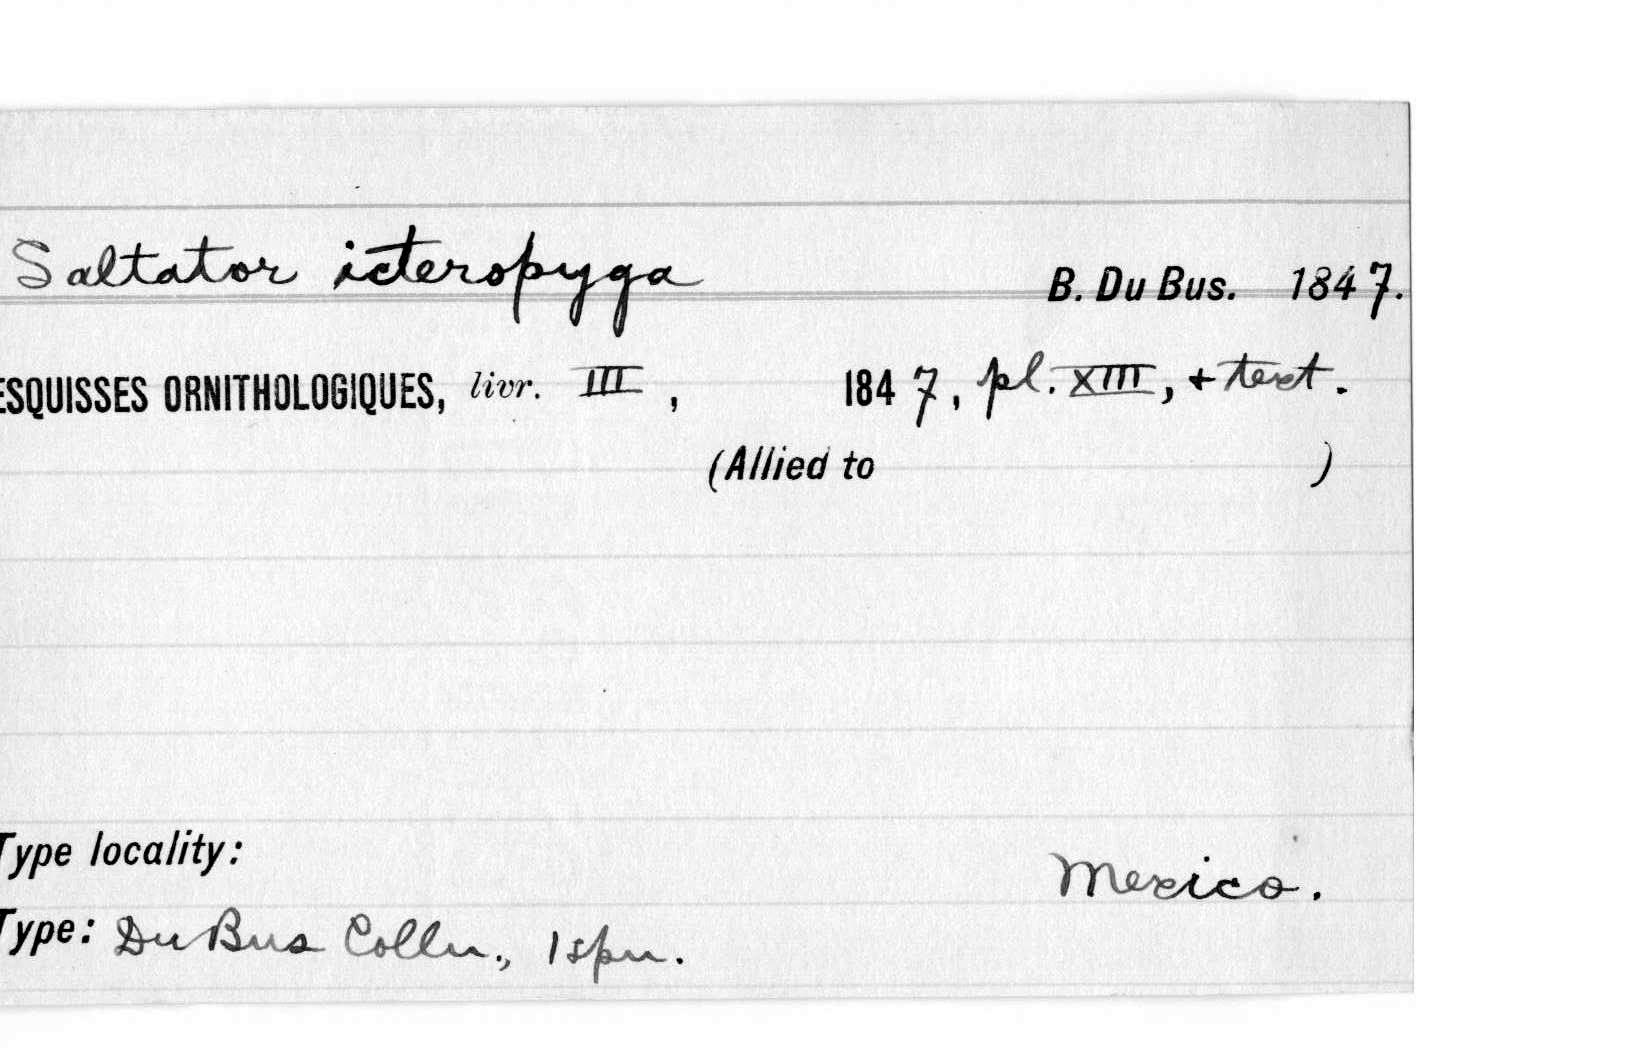 Saltator icteropyga B. Du Bus. 1847.
ESQUISSES ORNITHOLOGIQUES, livr. III, 1847, pl. XIII, + text.
(Allied to )
Type locality: Mexico.
Type: Du Bus Colln., 1 spn.